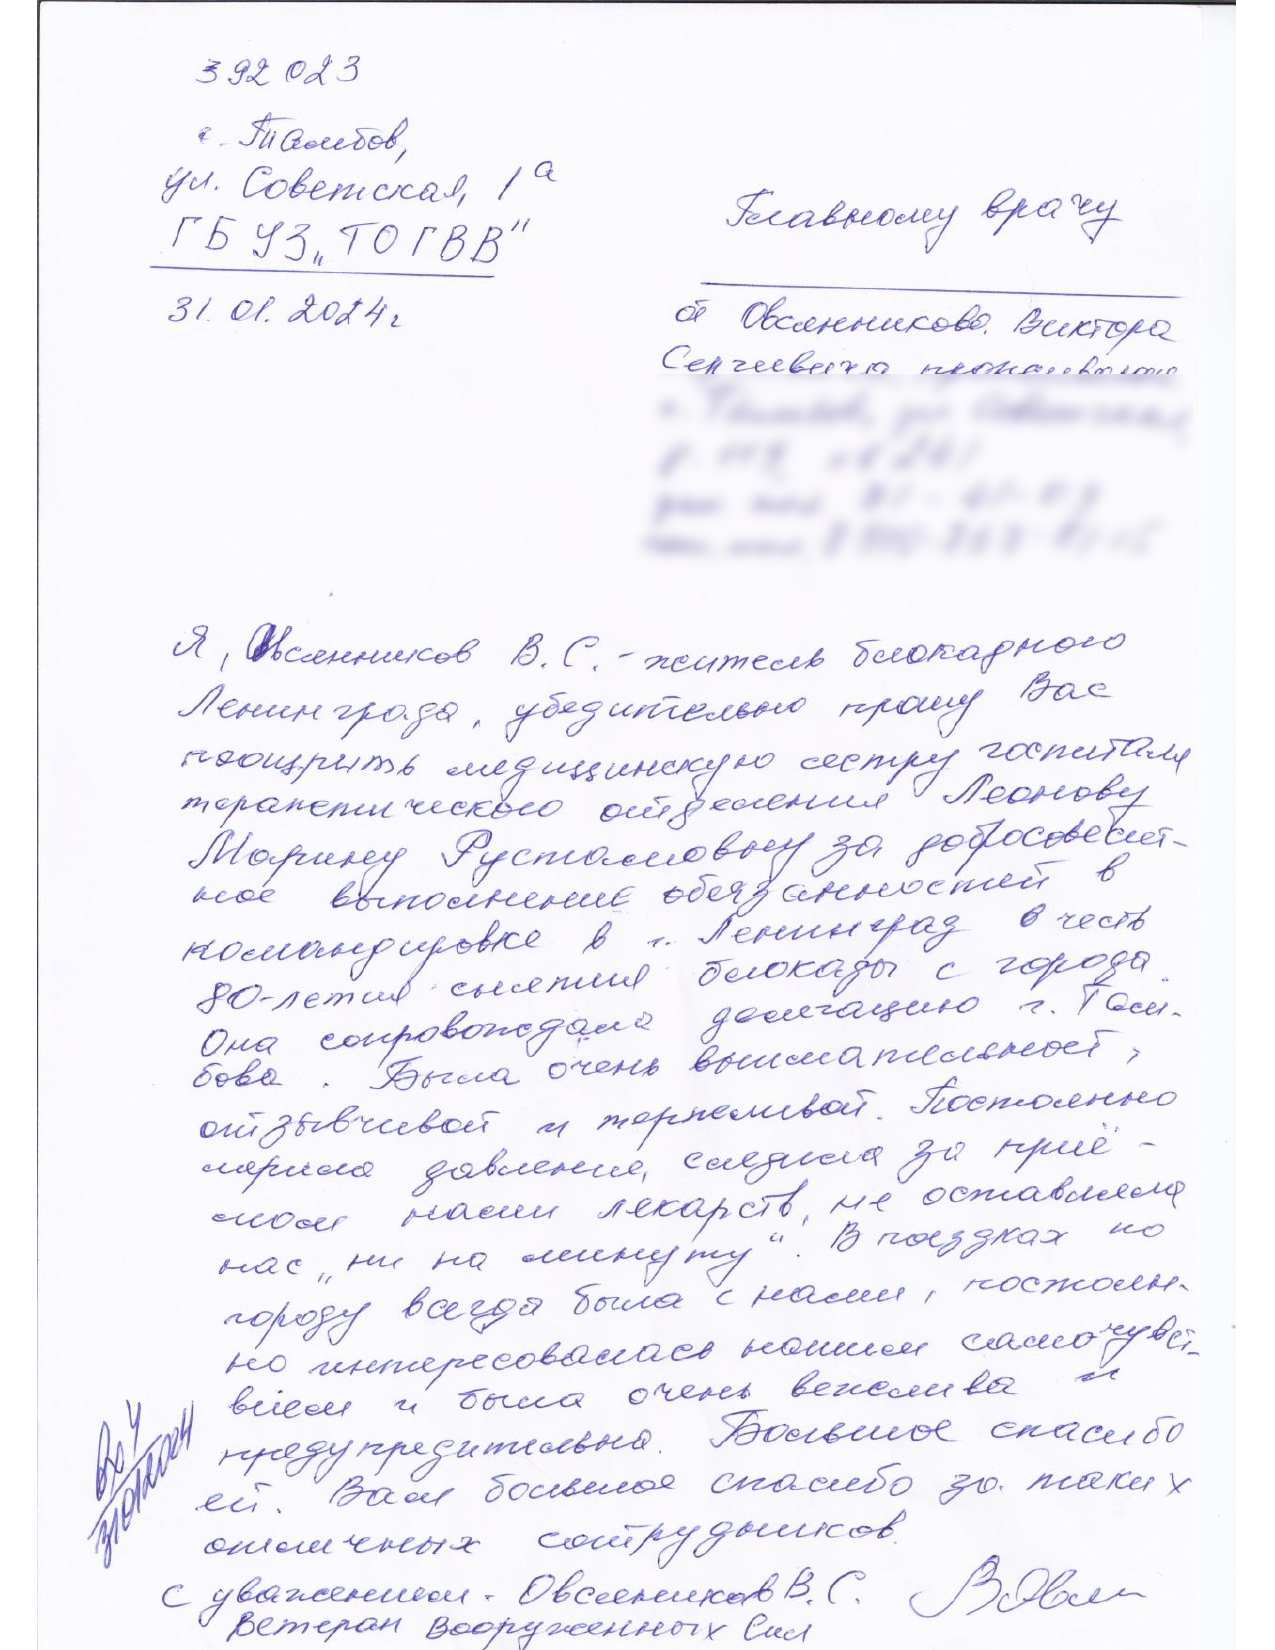 392023
г. Тамбов,
ул. Советская, 1а
ГБУЗ „ТОГВВ"
31.01.2024г
Главному врачу
от Овсянникова Виктора
Сергеевича
Я, Овсянников В.С. - житель блокадного
Ленинграда, убедительно прошу Вас
поощрить медицинскую сестру госпиталя
терапетического отделения Леонову
Марину Рустамовну за добросовест-
ное выполнение обязанностей в
командировке в г. Ленинград в честь
80-летия снятия блокады с города.
Она сопровождала делегацию г. Там-
бова. Была очень внимательной,
отзывчивой и терпеливой. Постоянно
мерила давление, следила за приё-
мом нами лекарств, не оставляла
нас „ни на минуту". В поездках по
городу всегда была с нами, постоян-
но интересовалась нашим самочувст-
вием и была очень вежлива и
предупредительна. Большое спасибо
ей. Вам большое спасибо за таких
отличных сотрудников.
С уважением - Овсянников В.С.
Ветеран Вооруженных Сил